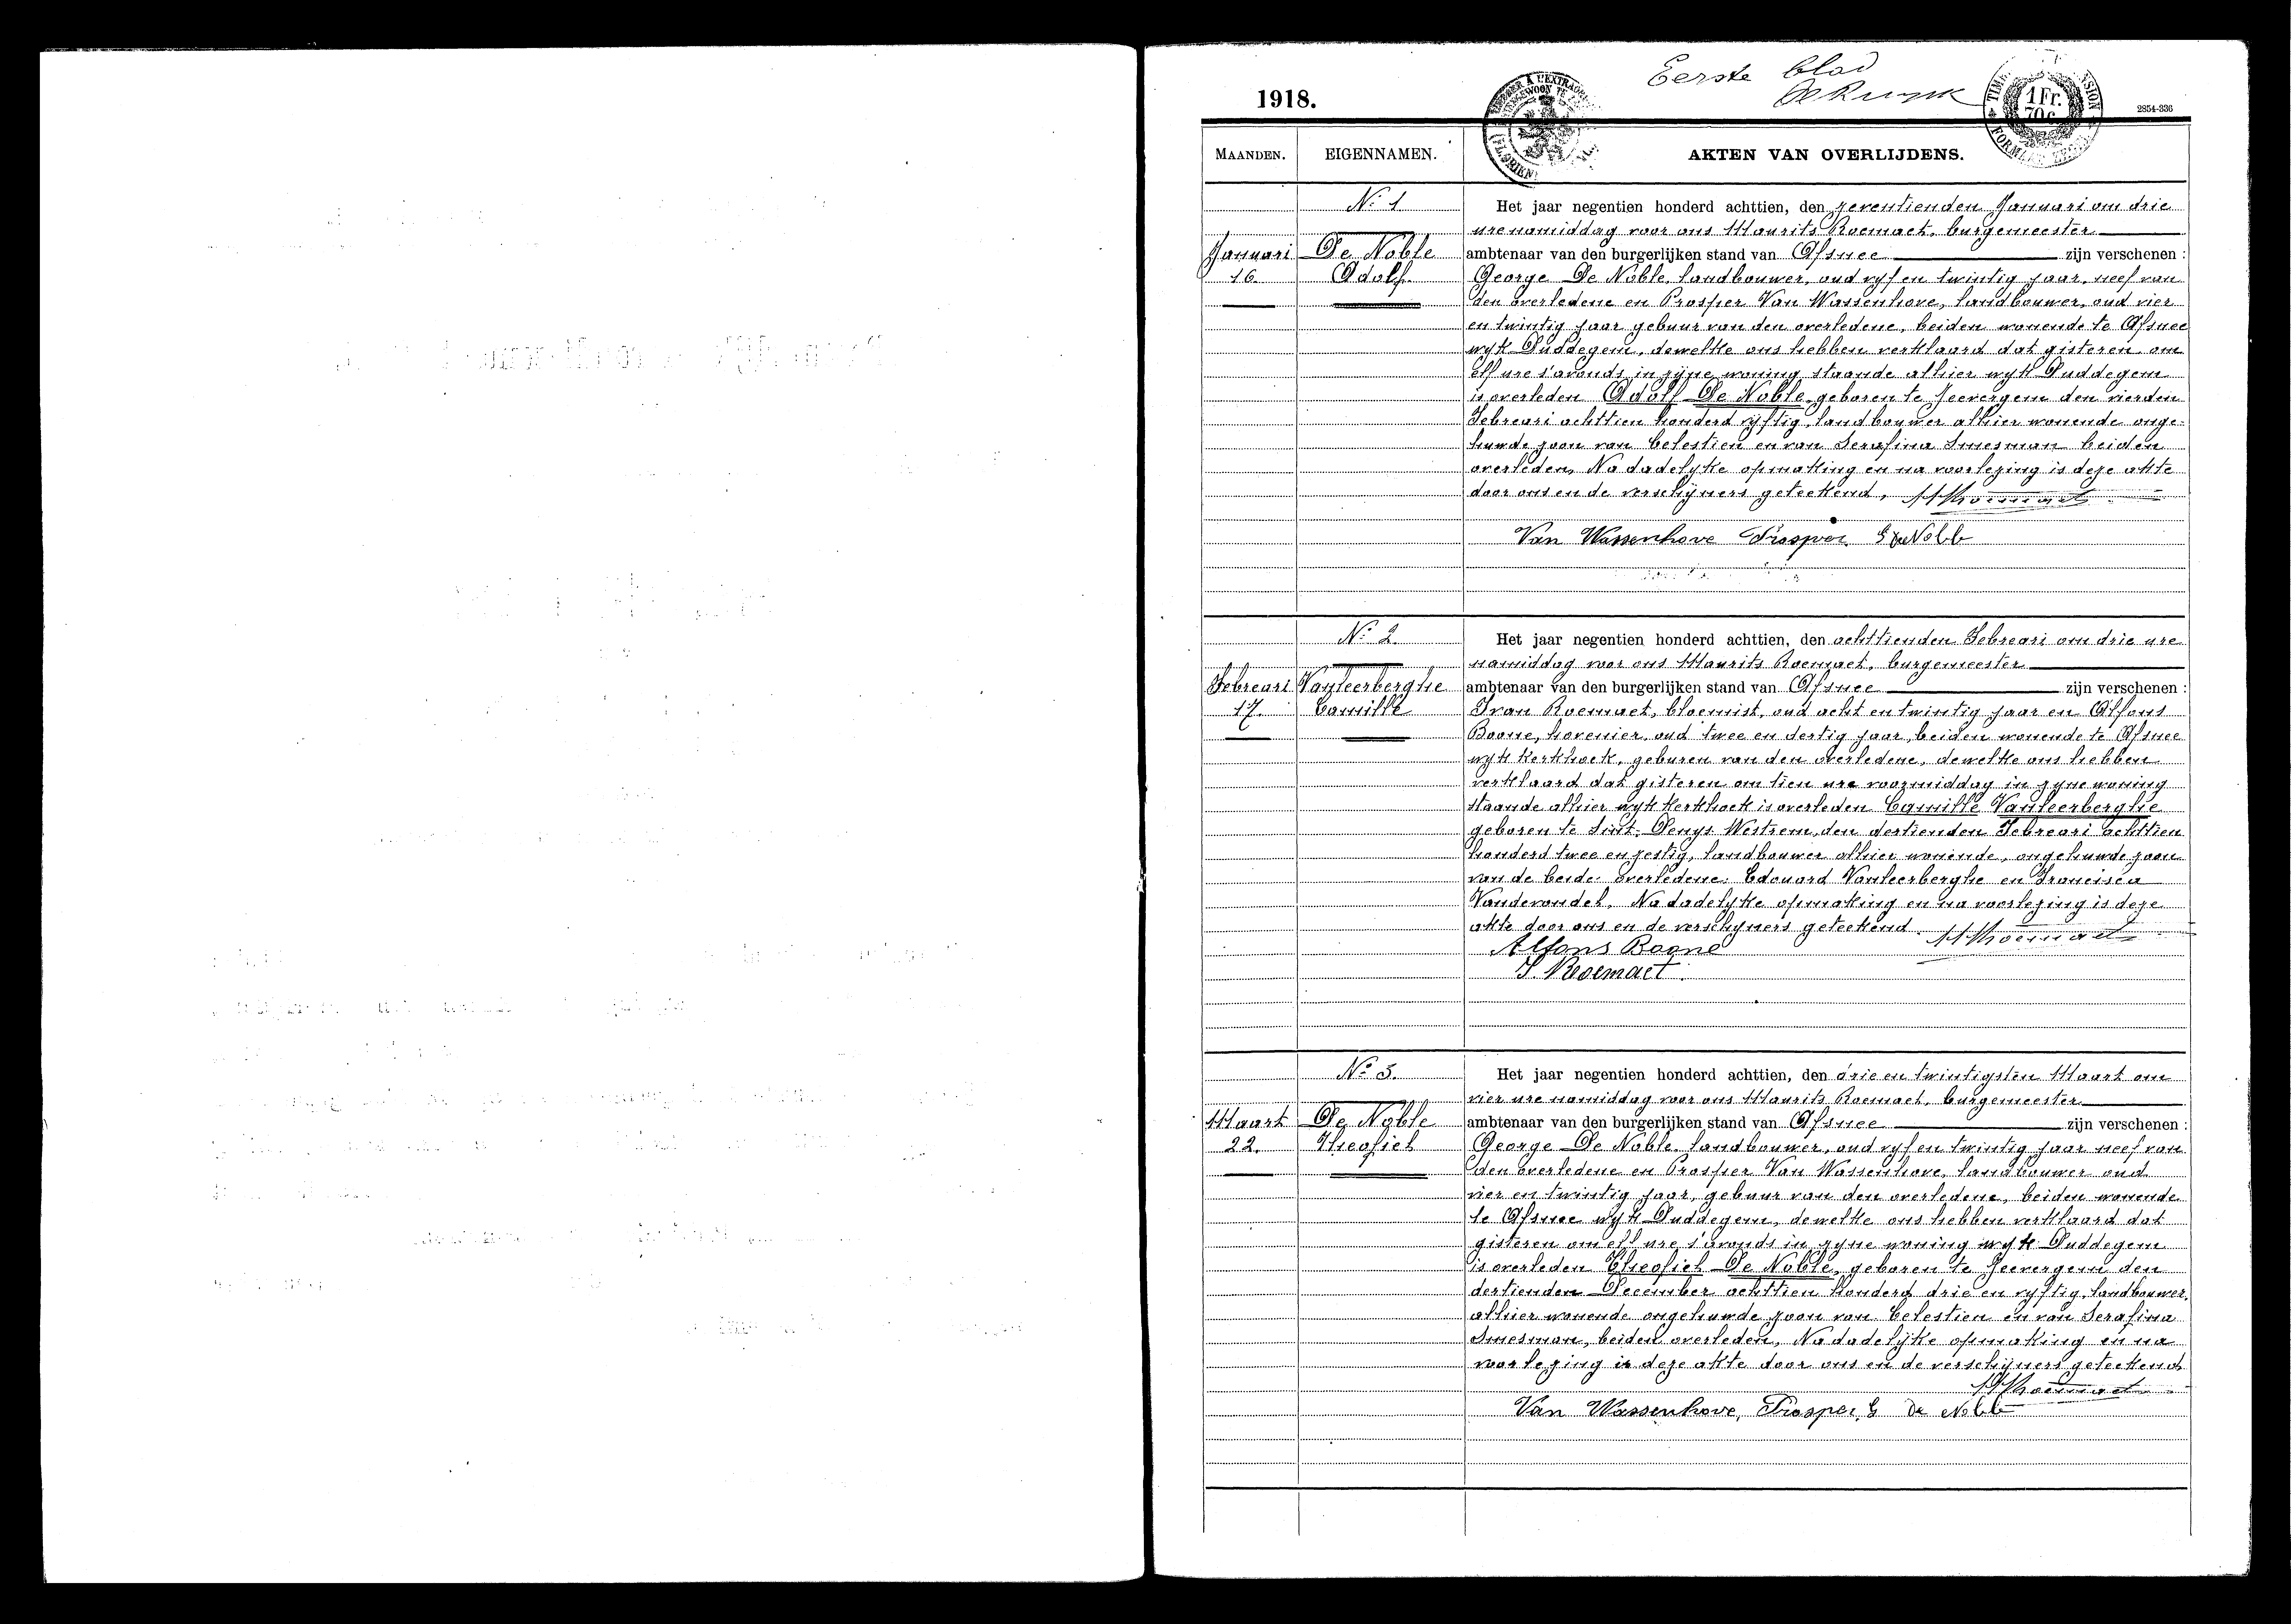 Eerste blad
1918.
1 Fr.
70 c.
2854-336
MAANDEN.
EIGENNAMEN.
AKTEN VAN OVERLIJDENS.
No 1
Januari
16.
De Noble
Adolf
Het jaar negentien honderd achttien, den zeventienden Januari om drie
ure namiddag voor ons Maurits Roemaet, burgemeester
ambtenaar van den burgerlijken stand van Afsnee zijn verschenen :
George De Noble, landbouwer, oud vyf en twintig jaar, neef van
den overledene en Prosper Van Wassenhove, landbouwer, oud vier
en twintig jaar gebuur van den overledene, beiden wonende te Afsnee
wyk Duddegem, dewelke ons hebben verklaard dat gisteren om
elf ure s'avonds in zyne woning staande alhier wyk Duddegem
is overleden Adolf De Noble geboren te Zeevergem den vierden
Febreari achttien honderd vyftig, landbouwer alhier wonende onge-
huwde zoon van Celestien en van Serafina Smesman beiden
overleden, Na dadelyke opmaking en na voorlezing is deze akte
door ons en de verschijners geteekend, M Roemaet
Van Wassenhove Prosper G De Noble
No 2.
Febreari
17.
Vanleerberghe
Camille
Het jaar negentien honderd achttien, den achttienden Febreari om drie ure
namiddag voor ons Maurits Roemaet, burgemeester
ambtenaar van den burgerlijken stand van Afsnee zijn verschenen :
Ivan Roemaet, bloemist, oud acht en twintig jaar en Alfons
Boone, hovenier, oud twee en dertig jaar, beiden wonende te Afsnee
wyk Kerkhoek, geburen van den overledene, dewelke ons hebben
verklaard dat gisteren om tien ure voormiddag in zyne woning
staande alhier wyk Kerkhoek is overleden Camille Vanleerberghe
geboren te Sint Denys Westrem, den dertienden Febreari achttien
honderd twee en zestig, landbouwer alhier wonende, ongehuwde zoon
van de beide overledene: Edouard Vanleerberghe en Francisca
Vanderondel, Na dadelyke opmaking en na voorlezing is deze
akte door ons en de verschijners geteekend. M Roemaet
Alfons Boone
I Roemaet.
No 3.
Maart
22.
De Noble
Theofiel
Het jaar negentien honderd achttien, den drie en twintigsten Maart om
vier ure namiddag voor ons Maurits Roemaet, burgemeester
ambtenaar van den burgerlijken stand van Afsnee zijn verschenen :
George De Noble, landbouwer, oud vyf en twintig jaar neef van
den overledene en Prosper Van Wassenhove, landbouwer oud
vier en twintig jaar, gebuur van den overledene, beiden wonende
te Afsnee wyk Duddegem, dewelke ons hebben verklaard dat
gisteren om elf ure s'avonds in zyne woning wyk Duddegem
is overleden Theofiel De Noble, geboren te Zeevergem den
dertienden December achttien honderd drie en vyftig, landbouwer,
alhier wonende ongehuwde zoon van Celestien en van Serafina
Smesman, beiden overleden, Na dadelijke opmaking en na
voorlezing is deze akte door ons en de verschijners geteekend
M Roemaet
Van Wassenhove, Prosper, G De Noble